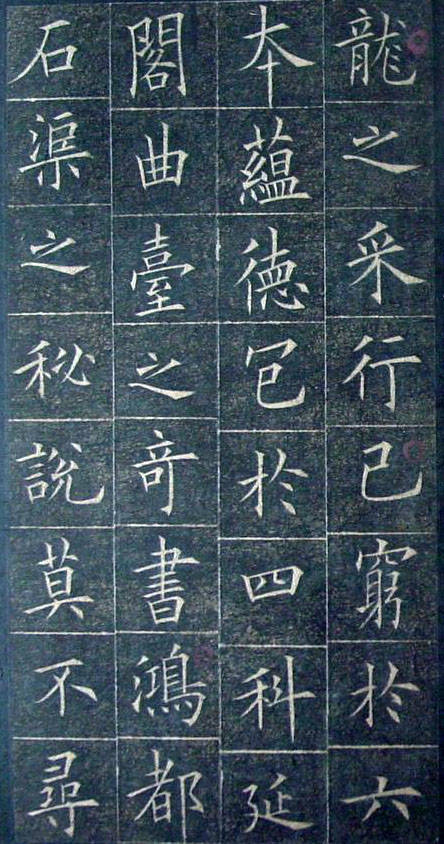 龍之采行已窮於六
夲蘊徳包於四科延
閣曲臺之竒書鴻都
石渠之秘說莫不尋